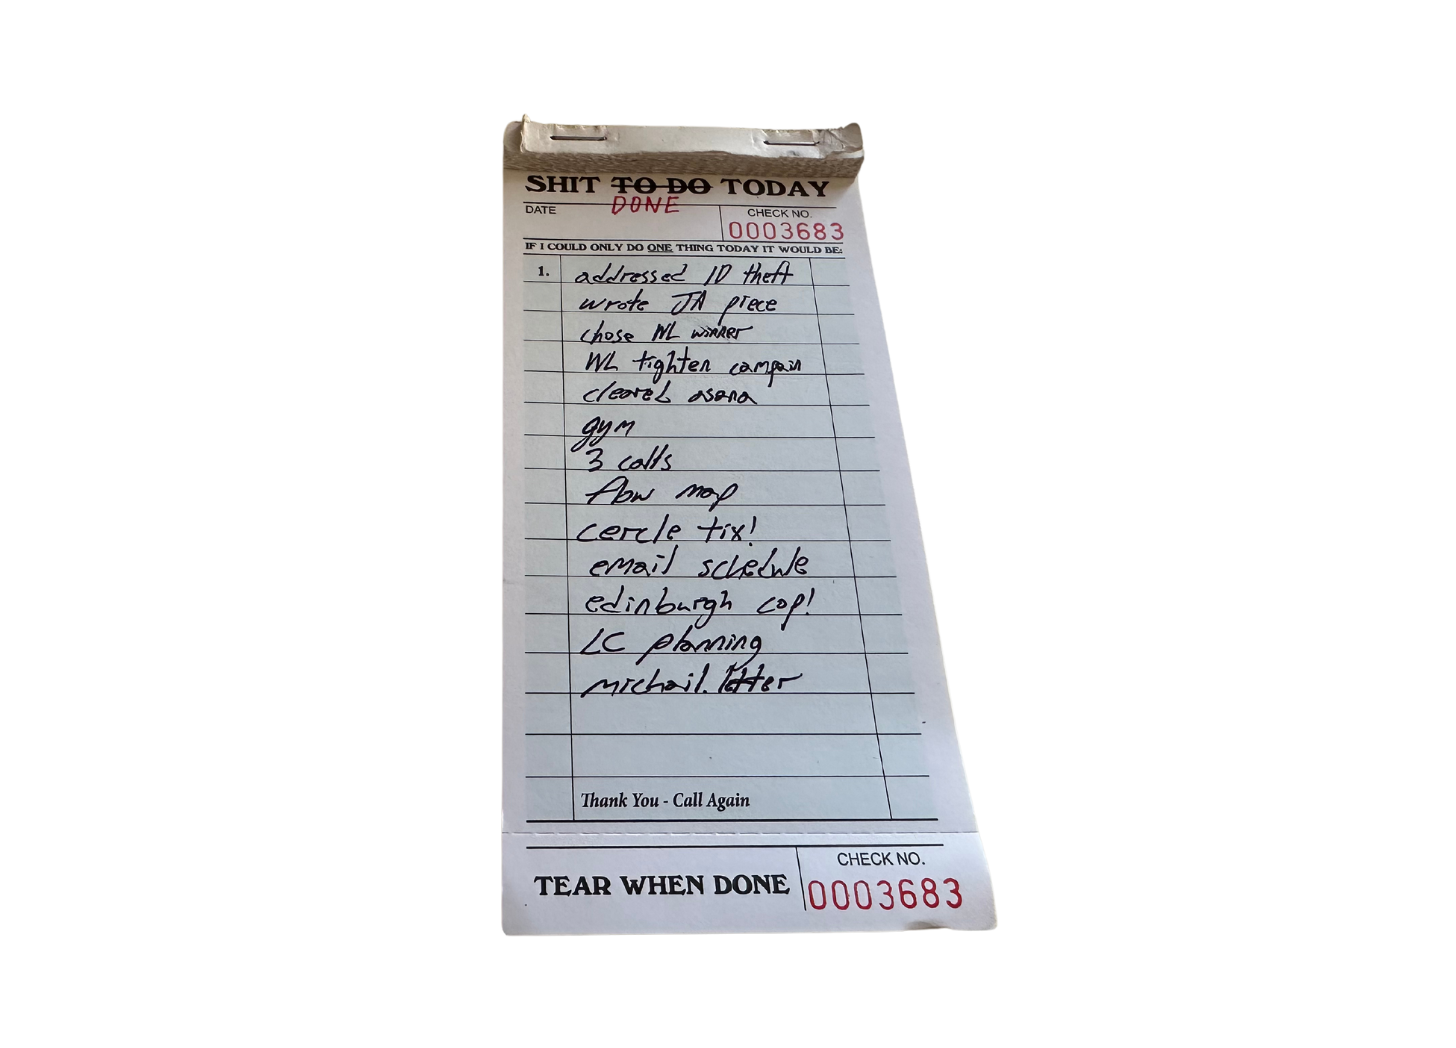 SHIT TO DO TODAY
DONE
DATE
CHECK NO.
0003683
IF I COULD ONLY DO ONE THING TODAY IT WOULD BE:
1. addressed ID theft
wrote JA piece
chose NL winner
WL tighten campain
cleared asana
gym
3 calls
flow map
cercle tix!
email schedule
edinburgh cop!
LC planning
michail. letter
Thank You - Call Again
TEAR WHEN DONE
CHECK NO.
0003683